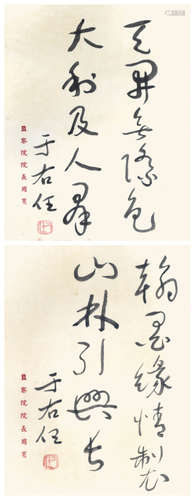 天開無際色
大利及人群
于右任
監察院院長用箋
翰墨緣情製
山林引興長
于右任
監察院院長用箋